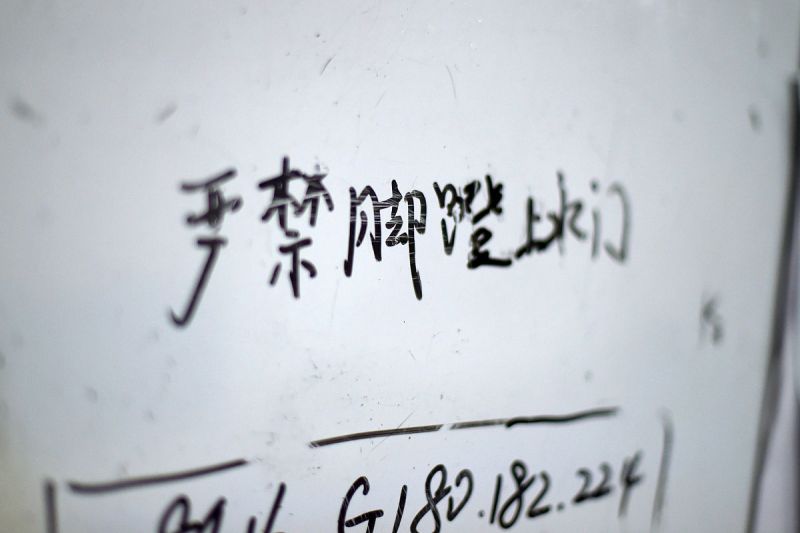 严禁脚蹬上水门
G180.182.224